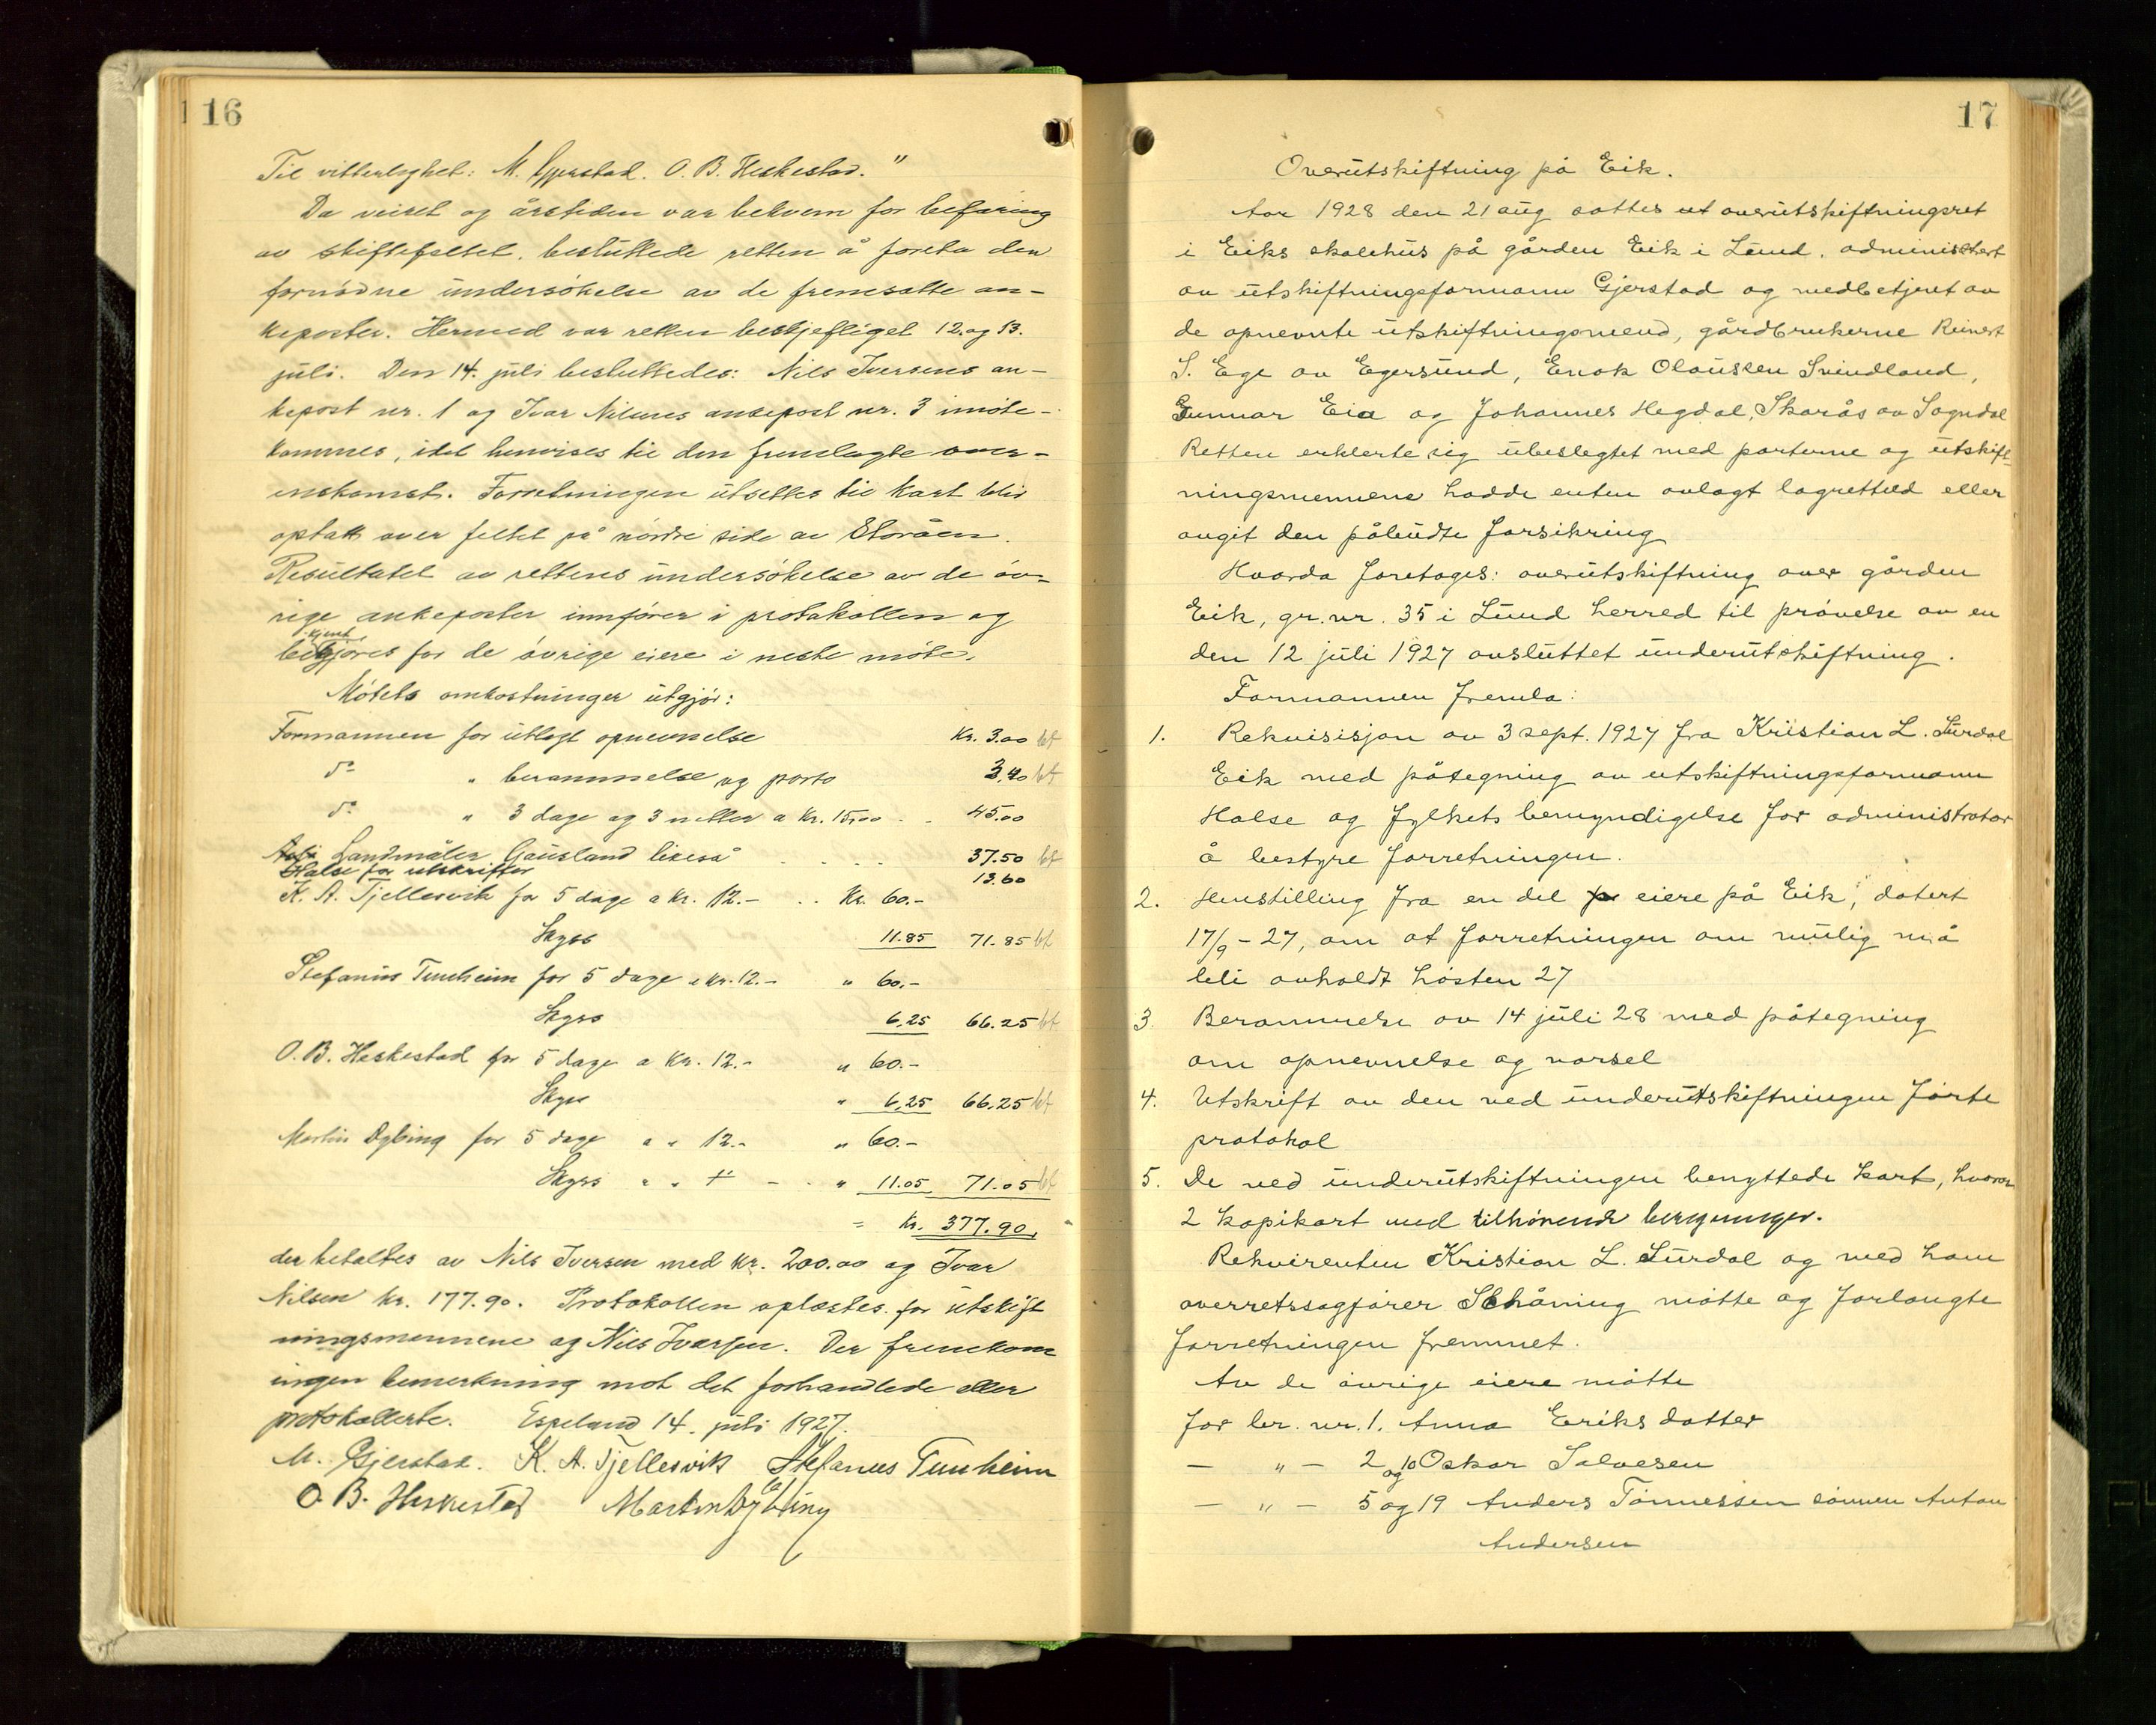 16
Til vitterlighet: M. Gjerstad. O. B. Heskestad."
Da veiret og årstiden var bekvem for befaring
av skiftefeltet, besluttede retten å foreta den
fornødne undersökelse av de fremsatte an-
keposter. Hermed var retten beskjeftiget 12. og 13.
juli. Den 14. juli besluttedes: Nils Iversens an-
kepost nr. 1 og Ivar Nilsens ankepost nr. 3 imöte-
kommes, idet henvises til den fremlagte over-
enskomst. Forretningen utsettes til kart blir
optatt over feltet på nördre side av Storåen.
Resultatet av rettens undersökelse av de öv-
rige ankeposter innförer i protokollen og
bekjentgjøres for de övrige eiere i neste möte.
Mötets omkostninger utgjör:
Formannen for utlagt opnevnelse Kr. 3.00 bt
do " berammelse og porto 3,40 bt
do " 3 dage og 3 netter a Kr. 15,00 . . 45.00
Landmåler Gausland likeså . . . . 37.50 bt
Halse for utskrifter 13.60
K. A. Tjellesvik for 5 dage a Kr. 12.- . . Kr. 60.-
Skyss 11.85 71.85 bt
Stefanus Tunheim for 5 dage a kr. 12.- " 60.-
Skyss 6,25 66.25 bt
O. B. Heskestad for 5 dage a Kr. 12.- " 60.-
Skyss " 6,25 66,25 bt
Martin Dybing for 5 dage " " 12.- " 60.-
Skyss " " - . " 11.05 71.05 bt
= Kr. 377.90,
der betaltes av Nils Iversen med kr. 200.00 og Ivar
Nilsen kr. 177.90. Protokollen oplæstes for utskift
ningsmennene og Nils Ivarsen. Der fremkom
ingen bemerkning mot det forhandlede eller
protokollerte. Espeland 14. juli 1927.
M. Gjerstad. K. A. Tjellesvik Stefanus Tunheim
O. B. Heskestad Martin Dybing
17
Overutskiftning på Eik.
Aar 1928 den 21 aug sattes ut overutskiftningsret
i Eiks skolehus på gården Eik i Lund. administrert
av utskiftningsformann Gjerstad og medbetjent av
de opnevnte utskiftningsmend, gårdbrukerne Reinert
S. Ege av Egersund, Enok Olaussen Svindland,
Gunnar Eia og Johannes Hegdal, Skarås av Sogndal
Retten erklerte sig ubeslegtet med parterne og utskift-
ningsmennene hadde enten avlagt lagretteed eller
avgit den påbudte forsikring
Hvorda foretages: overutskiftning over gården
Eik, gr. nr. 35 i Lund herred til prövelse av en
den 12 juli 1927 avsluttet underutskiftning.
Formannen fremla:
1. Rekvisisjon av 3 sept. 1927 fra Kristian L. Surdal
Eik med påtegning av utskiftningsformann
Halse og fylkets bemyndigelse for administrator
å bestyre forretningen.
2. Henstilling fra en del eiere på Eik, datert
17/9-27, om at forretningen om mulig må
bli avholdt hösten 27
3. Berammelse av 14 juli 28 med påtegning
om opnevnelse og varsel
4. Utskrift av den ved underutskiftningen förte
protokol
5. De ved underutskiftningen benyttede kart, hvorav
2 kopikart med tilhörende beregninger.
Rekvirenten Kristian L. Surdal og med ham
overretssagförer Schåning mötte og forlangte
forretningen fremmet.
Av de övrige eiere mötte
for br. nr. 1. Anna Eriksdatter
— " — 2 og 10 Oskar Salvesen
— " — 5 og 19 Anders Tönnessen sönnen Anton
Andersen